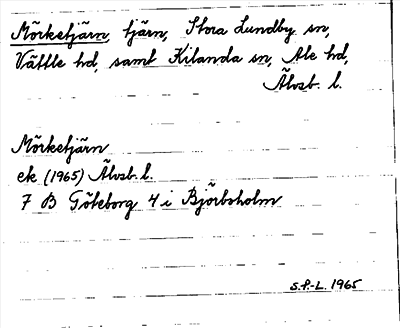 Mörketjärn, tjärn, Stora Lundby sn,
Vättle hd, samt Kilanda sn, Ale hd,
Älvsb. l.
Mörketjärn
ek (1965) Älvsb. l.
7 B Göteborg 4 i Björboholm
S.F.-L. 1965